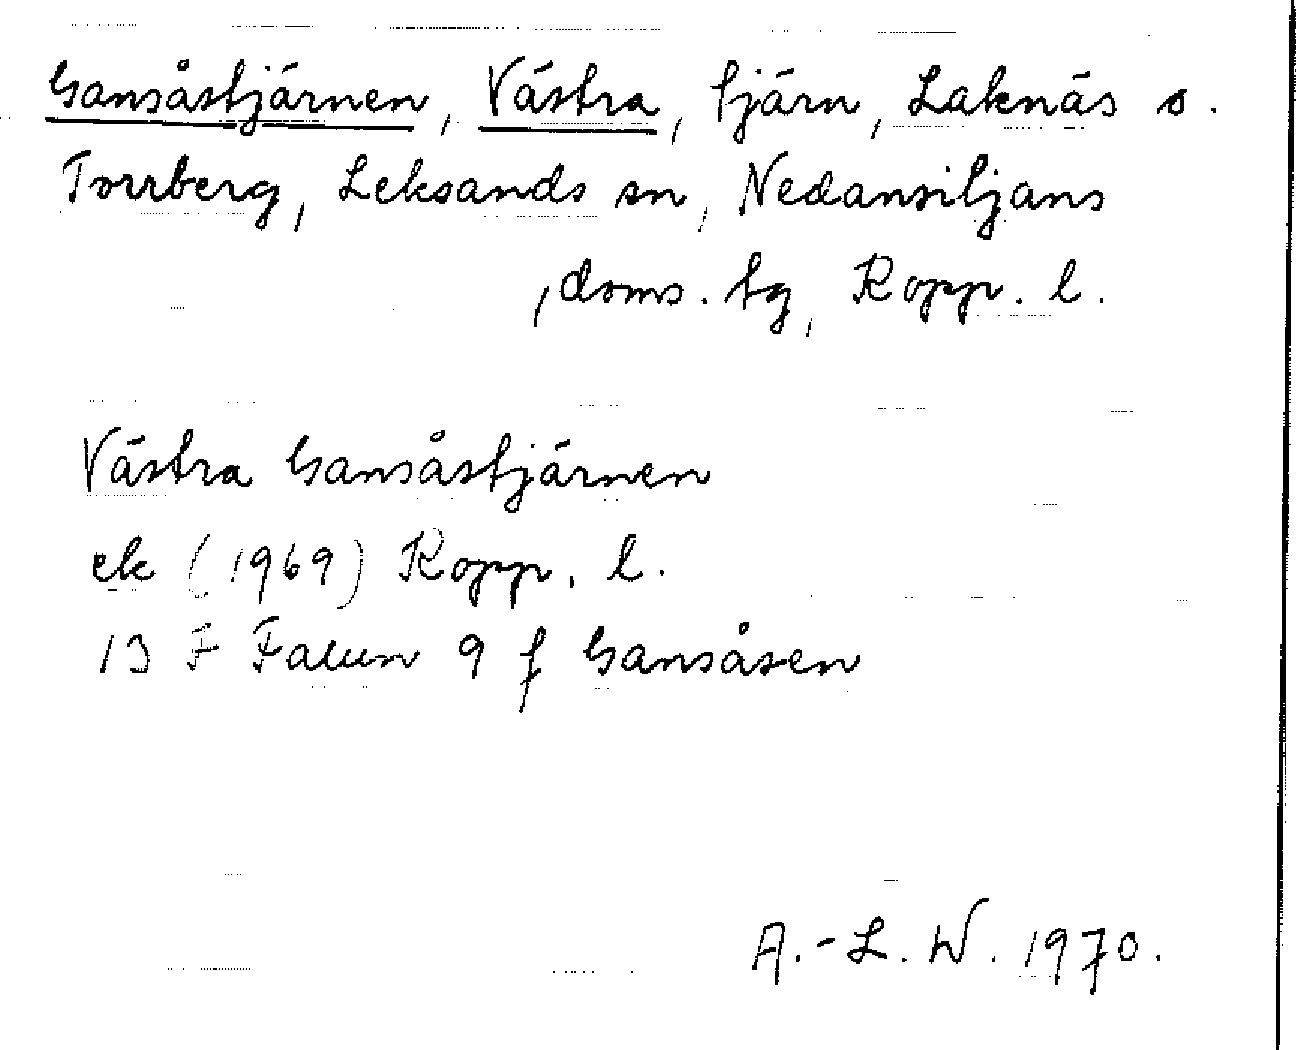 Gansåstjärnen, Västra, tjärn, Laknäs o.
Torrberg, Leksands sn, Nedansiljans
doms. tg, Kopp. l.
Västra Gansåstjärnen
ek (1969) Kopp. l.
13 F Falun 9 f Gansåsen
A.-L. W. 1970.